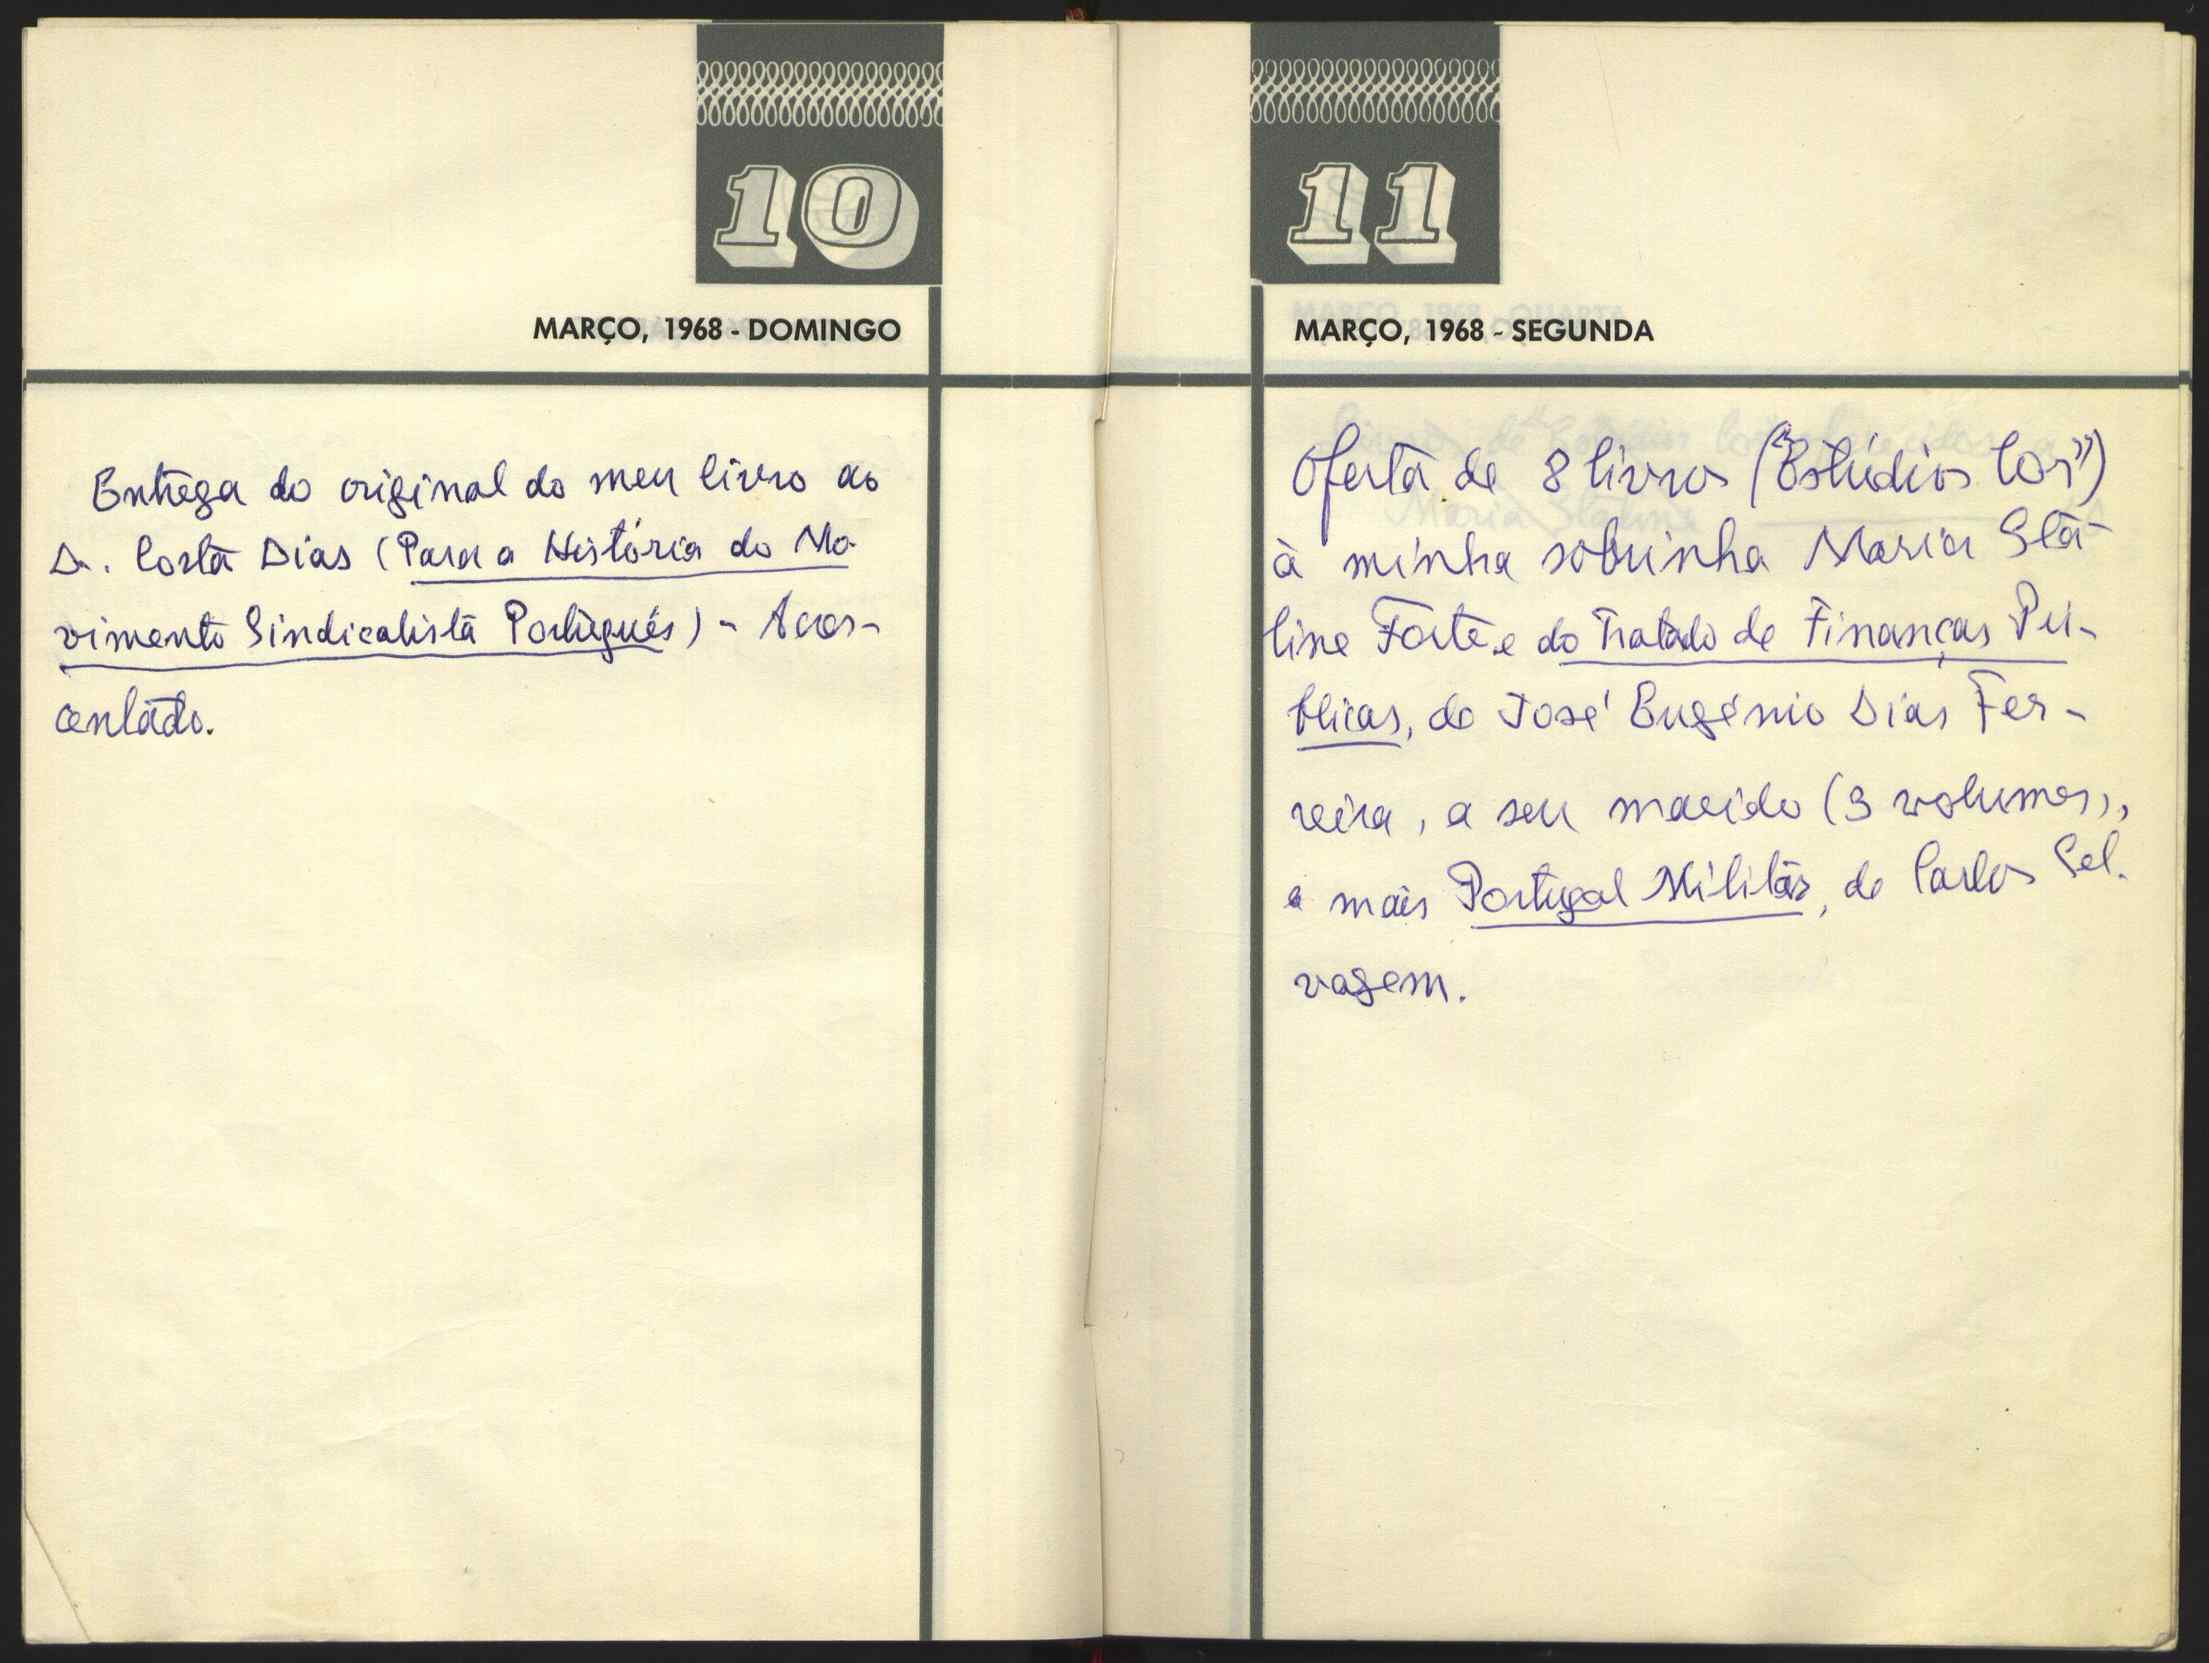 10
MARÇO, 1968 - DOMINGO
Entrega do original do meu livro ao
Dr. Costa Dias (Para a História do Mo-
vimento Sindicalista Português) - Acres-
centado.
11
MARÇO, 1968 - SEGUNDA
Oferta de 8 livros ("Estúdios Cor")
à minha sobrinha Maria Sta-
line Forte e do Tratado de Finanças Pú-
blicas, do José Eugénio Dias Fer-
reira, a seu marido (3 volumes),
e mais Portugal Militar, de Carlos Sel-
vagem.